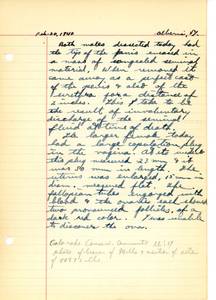 Feb. 20, 1940 Albany, N.Y.
Both males dissected today had
the tip of the penis encased in
a mass of congealed seminal
material. When removed it
came away as a perfect cast
of the penis & also of the
urethra for a distance of
2 inches. This I take to be
the result of involuntary
discharge of the seminal
fluid at time of death.
The larger female today
had a large copulation plug
in the vagina. At its widest
this plug measured 23 mm & it
was 30 mm in length. The
uterus was enlarged, 15 mm in
diam. measured flat. The
fallopian tubes engorged with
blood & the ovaries each showed
two pronounced follicles, of a
dark red color. I was unable
to discover the ova.
Colorado Conserv. Comments
photo of